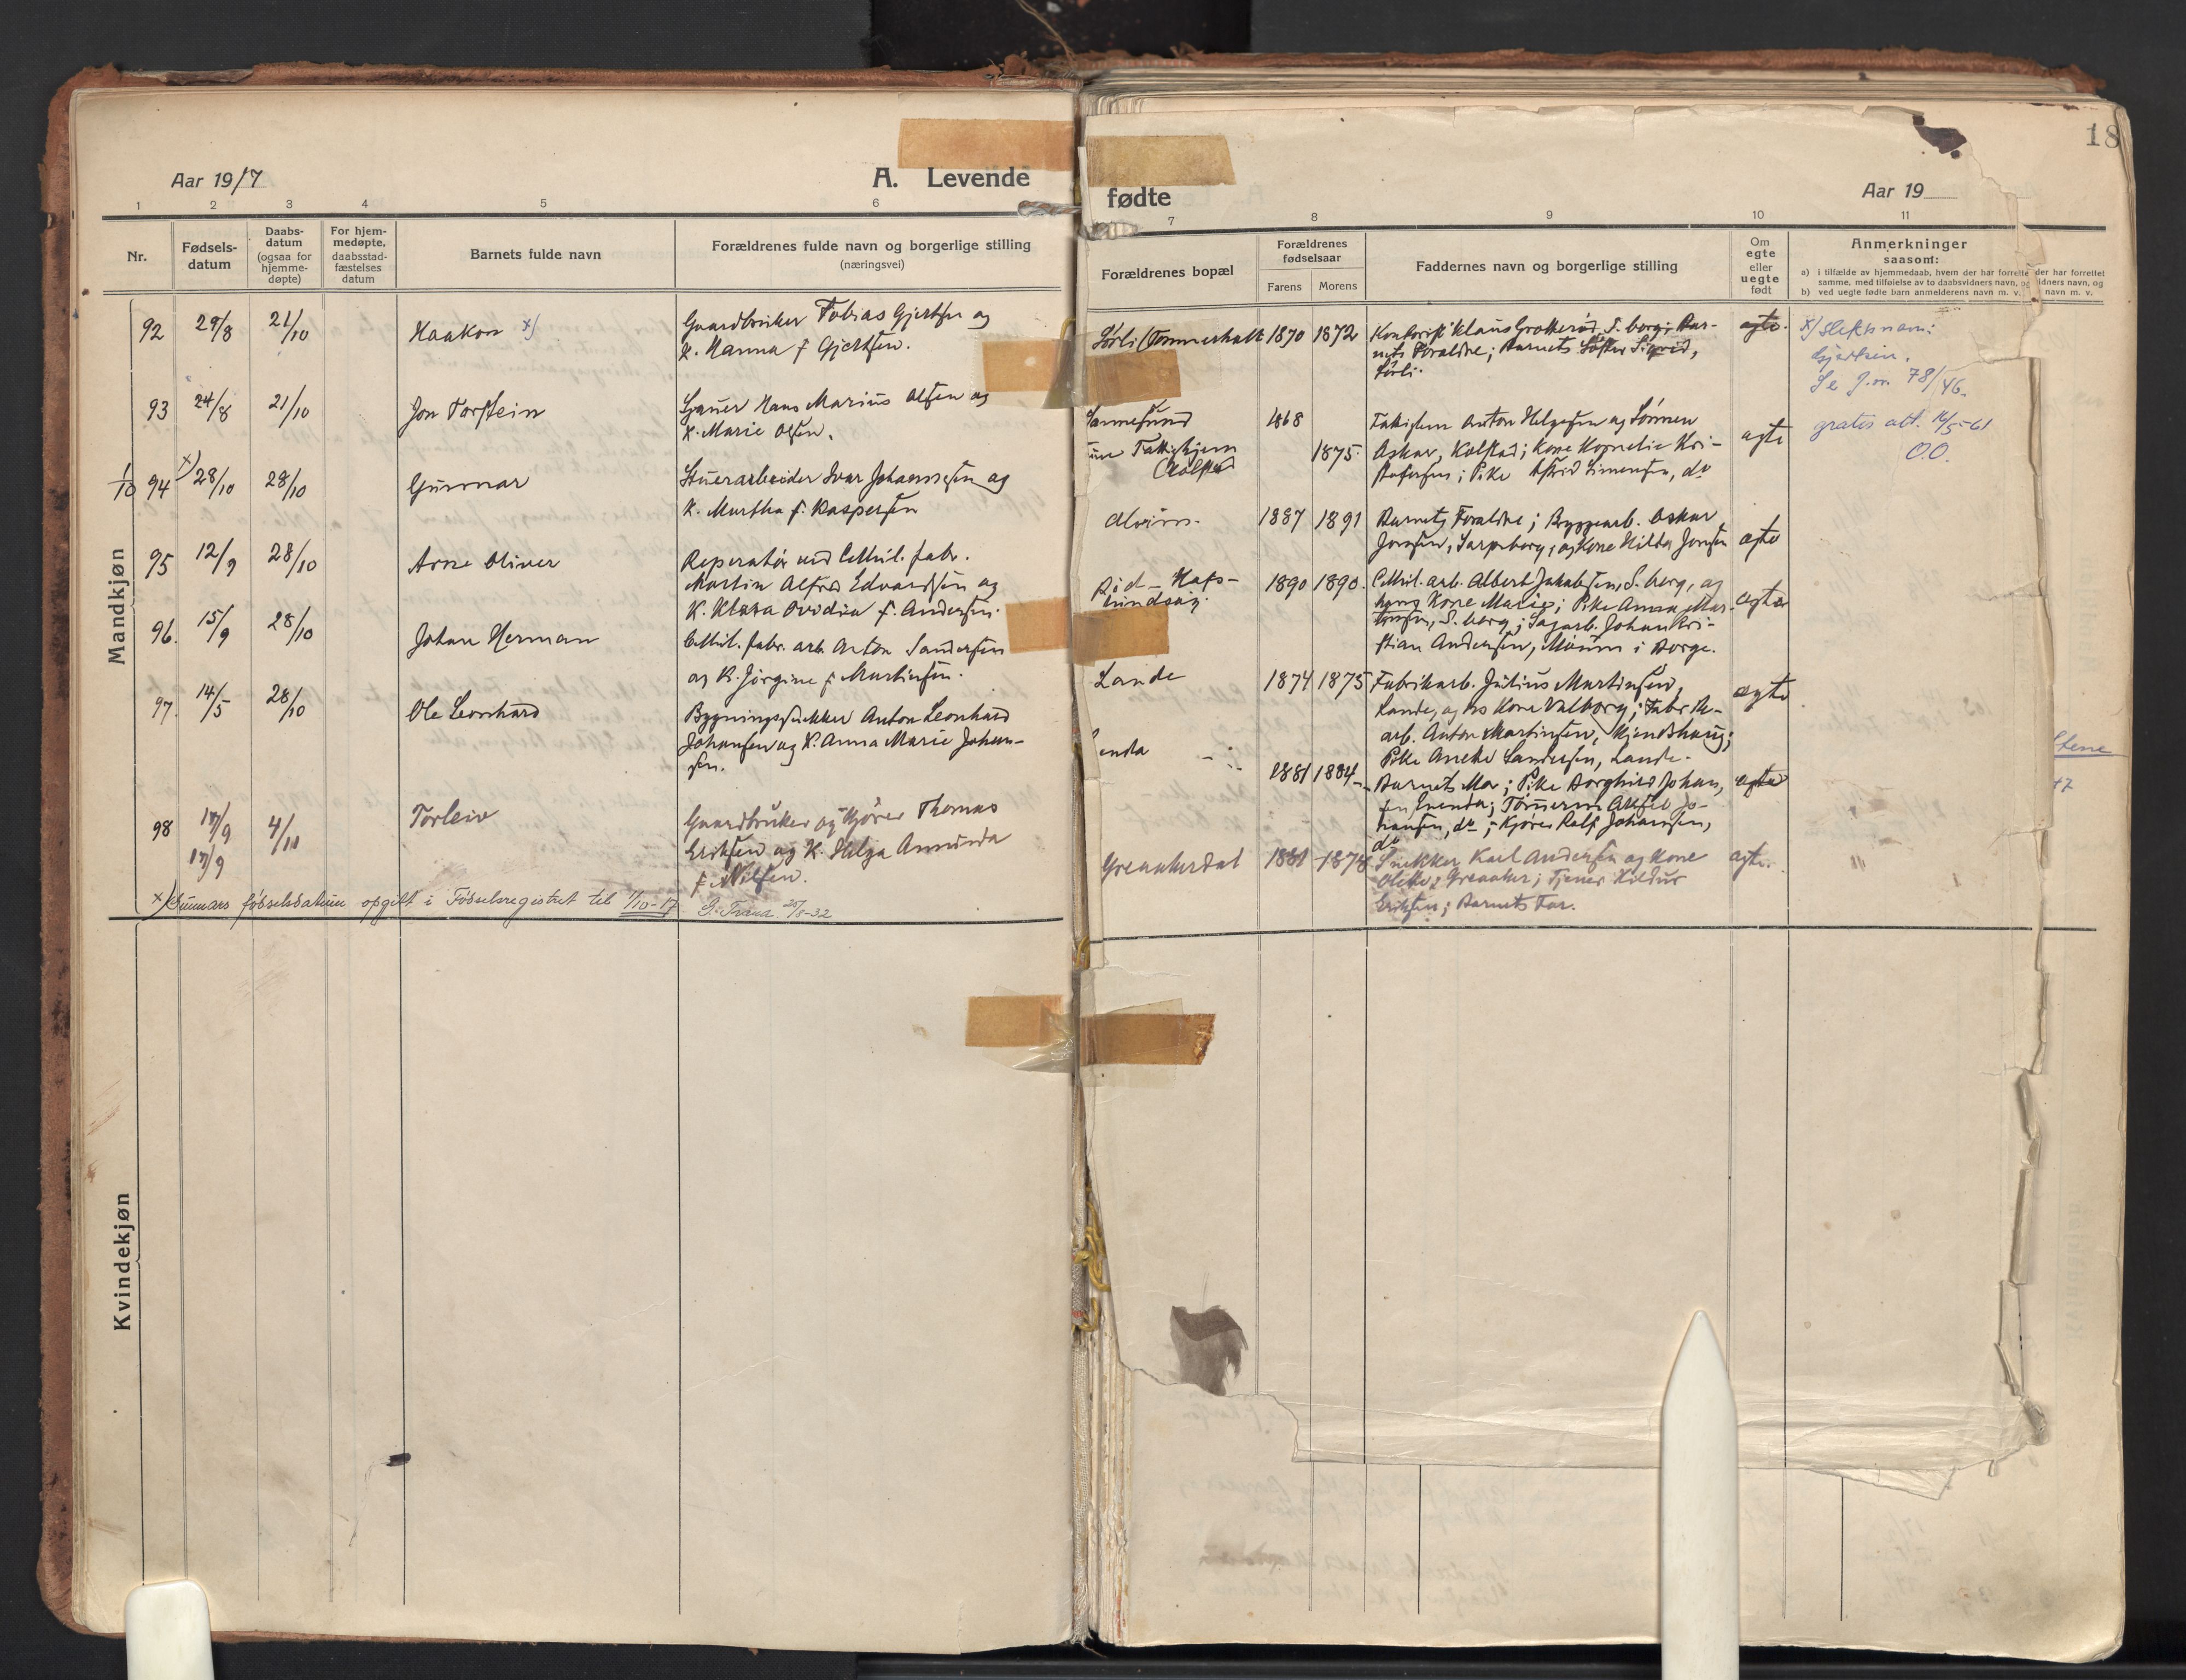 Aar 1917
A. Levende
1 2 3 4 5 6
Nr.
Fødsels-
datum
Daabs-
datum
(ogsaa for
hjemme-
døpte)
For hjem-
medøpte,
daabsstad-
fæstelses
datum
Barnets fulde navn
Forældrenes fulde navn og borgerlige stilling
(næringsvei)
Mandkjøn
92 29/8 21/10 Haakon x) Gaardbruker Tobias Gjertsen og
K. Hanna f. Gjertsen.
93 24/8 21/10 Jon Torstein Hans Marius Olsen og
K. Marie Olsen.
1/10 94 x) 28/10 28/10 Gunnar Stuerarbeider Ivar Johannesen og
K. Martha f. Kaspersen
95 12/9 28/10 Arne Oliver Reperatør ved Cellul. fabr.
Martin Alfred Edvardsen og
K. Klara Ovidia f. Andersen.
96. 15/9 28/10 Johan Herman Cellul. fabr. arb. Anton Sandersen
og K. Jørgine f. Martinsen.
97. 14/5 28/10 Ole Leonhard Bygningssnekker Anton Leonhard
Johansen og K. Anna Marie Johan-
sen.
98 17/9 4/11 Torleiv Gaardbruker og Kjører Thomas
17/9 Eriksen og K. Helga Amunda
f. Nilsen.
x) Gunnars fødselsdatum opgitt i Fødselsregistret til 1/10-17 25/8-32
Kvindekjøn
18
fødte
Aar 19
7 8 9 10 11
Forældrenes bopæl
Forældrenes
fødselsaar
Farens Morens
Faddernes navn og borgerlige stilling
Om
egte
eller
uegte
født
Anmerkninger
saasom:
a) i tilfælde av hjemmedaab, hvem der har forrette der har forrettet
samme, med tilføielse av to daabsvidners navn, og idners navn, og
b) ved uegte fødte barn anmelderens navn m. v. navn m. v.
Sørli 1870 1872 Kontorist Klaus Grotterød, S.borg; Bar- egte. x) slektsnavn:
nets Foraldre; Barnets Søster Sigrid, Gjertsen.
Sørli. Se J.nr. 78/46.
Sannesund 1868 Anton Helgesen og Sønnen egte gratis att. 16/5-61
Fattighjem 1875. Asker, Kolstad; Kone Kornelie Kri- O.O.
Kolstad stofersen; Pike Astrid Simensen, do
Alvim. 1887 1891 Barnets Foraldre; Byggearb. Oskar egte
Jonsen, Sarpsborg, og Kone Hilda Jonsen
Hafs- 1890 1890. Cellul. arb. Albert Jakobsen, S.borg, og egte
lundsøy. hans Kone Marie; Pike Anna Mar-
tinsen, S.borg; Sagarb. Johan Kri-
stian Andersen, Moum i Borge.
Lande 1874 1875 Fabrikarb. Julius Martinsen, egte
Lande, og hs Kone Valborg; Fabrik-
arb. Anton Martinsen,
Pike Sandersen, Lande.
enda 1881 1884 Barnets Mor; Pike Borghild Johan- egte
sen, Enenda; Jo-
hansen, do; Kjører Rolf Johansen,
do
Greaakerdal 1881 1878 Snekker Karl Andersen og Kone egte.
Greaaker; Tjener Hildur
Eriksen; Barnets Far.
Stene
47